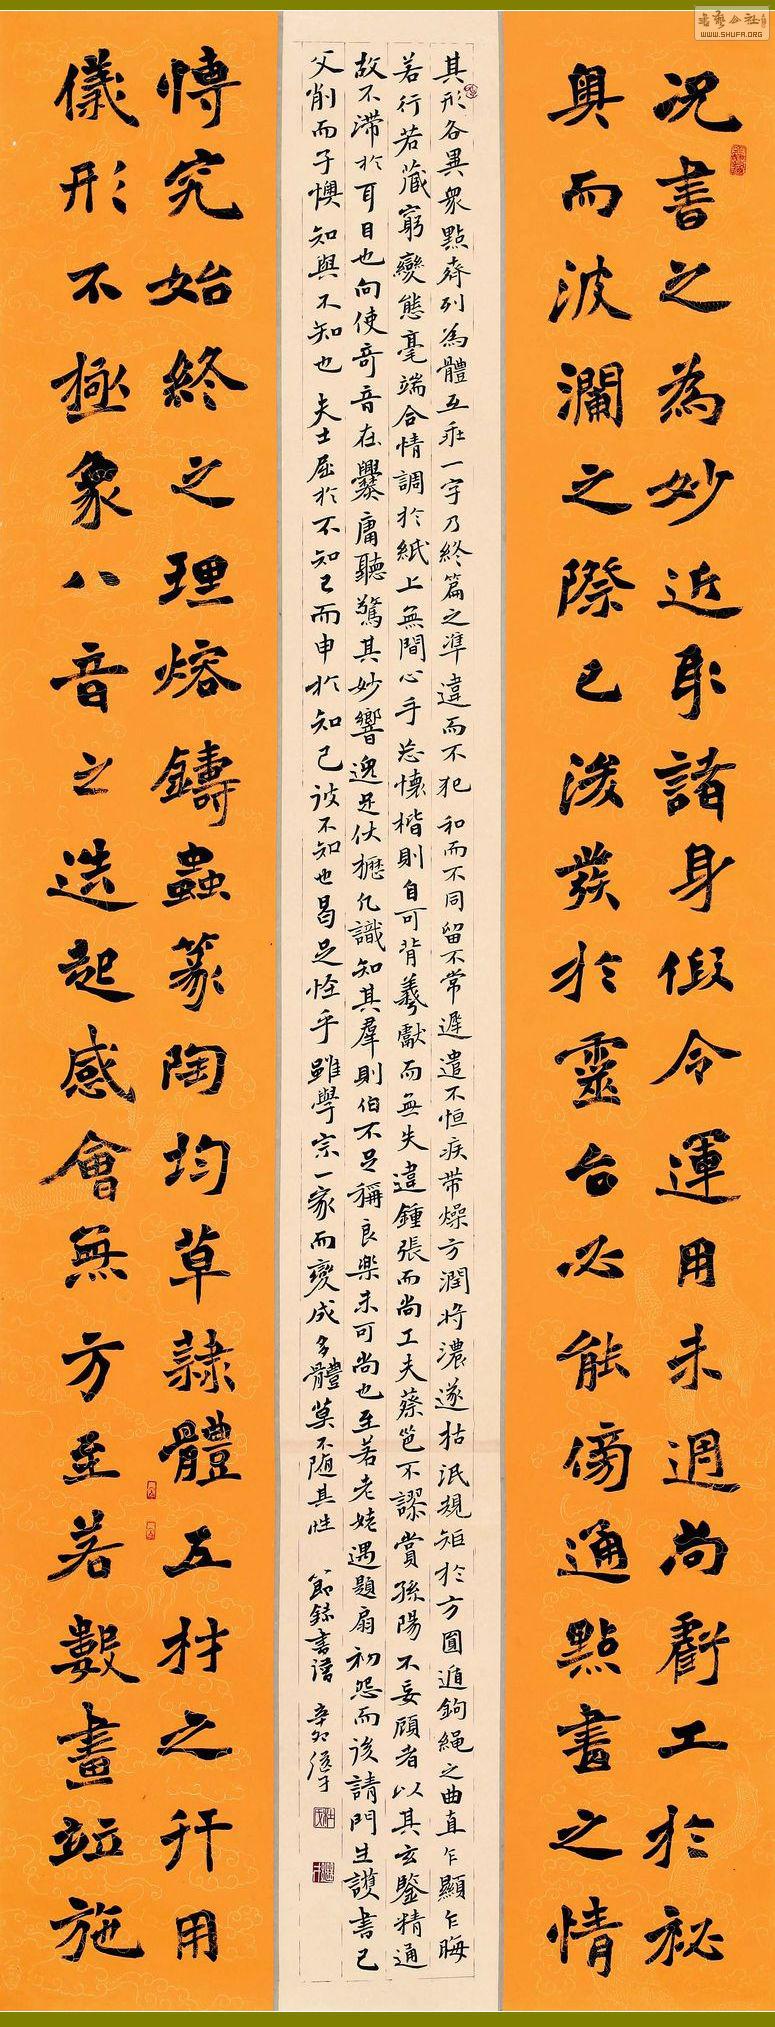 況書之為妙近取諸身假令運用未週尚虧工於祕
奧而波瀾之際已浚發於靈台必能傍通點畫之情
愽究始終之理熔鑄蟲篆陶均草隷體五材之竝用
儀形不極象八音之迭起感會無方至若數畫竝施
其形各異衆點齊列為體互乖一字乃終篇之準違而不犯和而不同留不常遲遣不恒疾带燥方潤将濃遂枯泯規矩於方圓遁鉤繩之曲直乍顯乍晦
若行若藏窮變態毫端合情調於紙上無間心手忘懷楷則自可背羲獻而無失違鍾張而尚工夫蔡邕不謬賞孫陽不妄顧者以其玄鑒精通
故不滞於耳目也向使奇音在爨庸聽驚其妙響逸足伏櫪凡識知其羣則伯不足稱良樂未可尚也至若老姥遇題扇初怨而後請門生護書已
父削而子懊知與不知也夫士屈於不知己而申於知己彼不知也曷足怪乎雖學宗一家而變成多體莫不随其性節録書譜辛卯
WWW.SHUFA.ORG